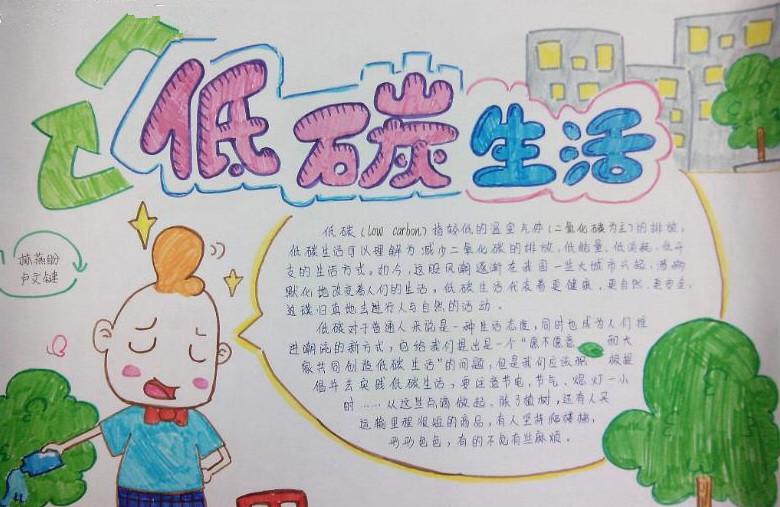 低碳生活
低碳（low carbon）指较低的温室气体（二氧化碳为主）的排放，
低碳生活可以理解为减少二氧化碳的排放，低能量、低消耗、低开
支的生活方式。如今，这股风潮逐渐在我国一些大城市兴起，潜移
默化地改变着人们的生活，低碳生活代表着更健康、更自然、更安全，
返璞归真地去进行人与自然的活动。
低碳对于普通人来说是一种生活态度，同时也成为人们推
进潮流的新方式，它给我们提出是一个“愿不愿意 和大
家共同创造低碳生活”的问题，但是我们应该积 极提
倡并去实践低碳生活，要注意节电、节气、熄灯一小
时……从这些点滴做起，除了植树，还有人买
运输里程很短的商品，有人坚持爬楼梯，
形形色色，有的不免有些麻烦。
卢文婕